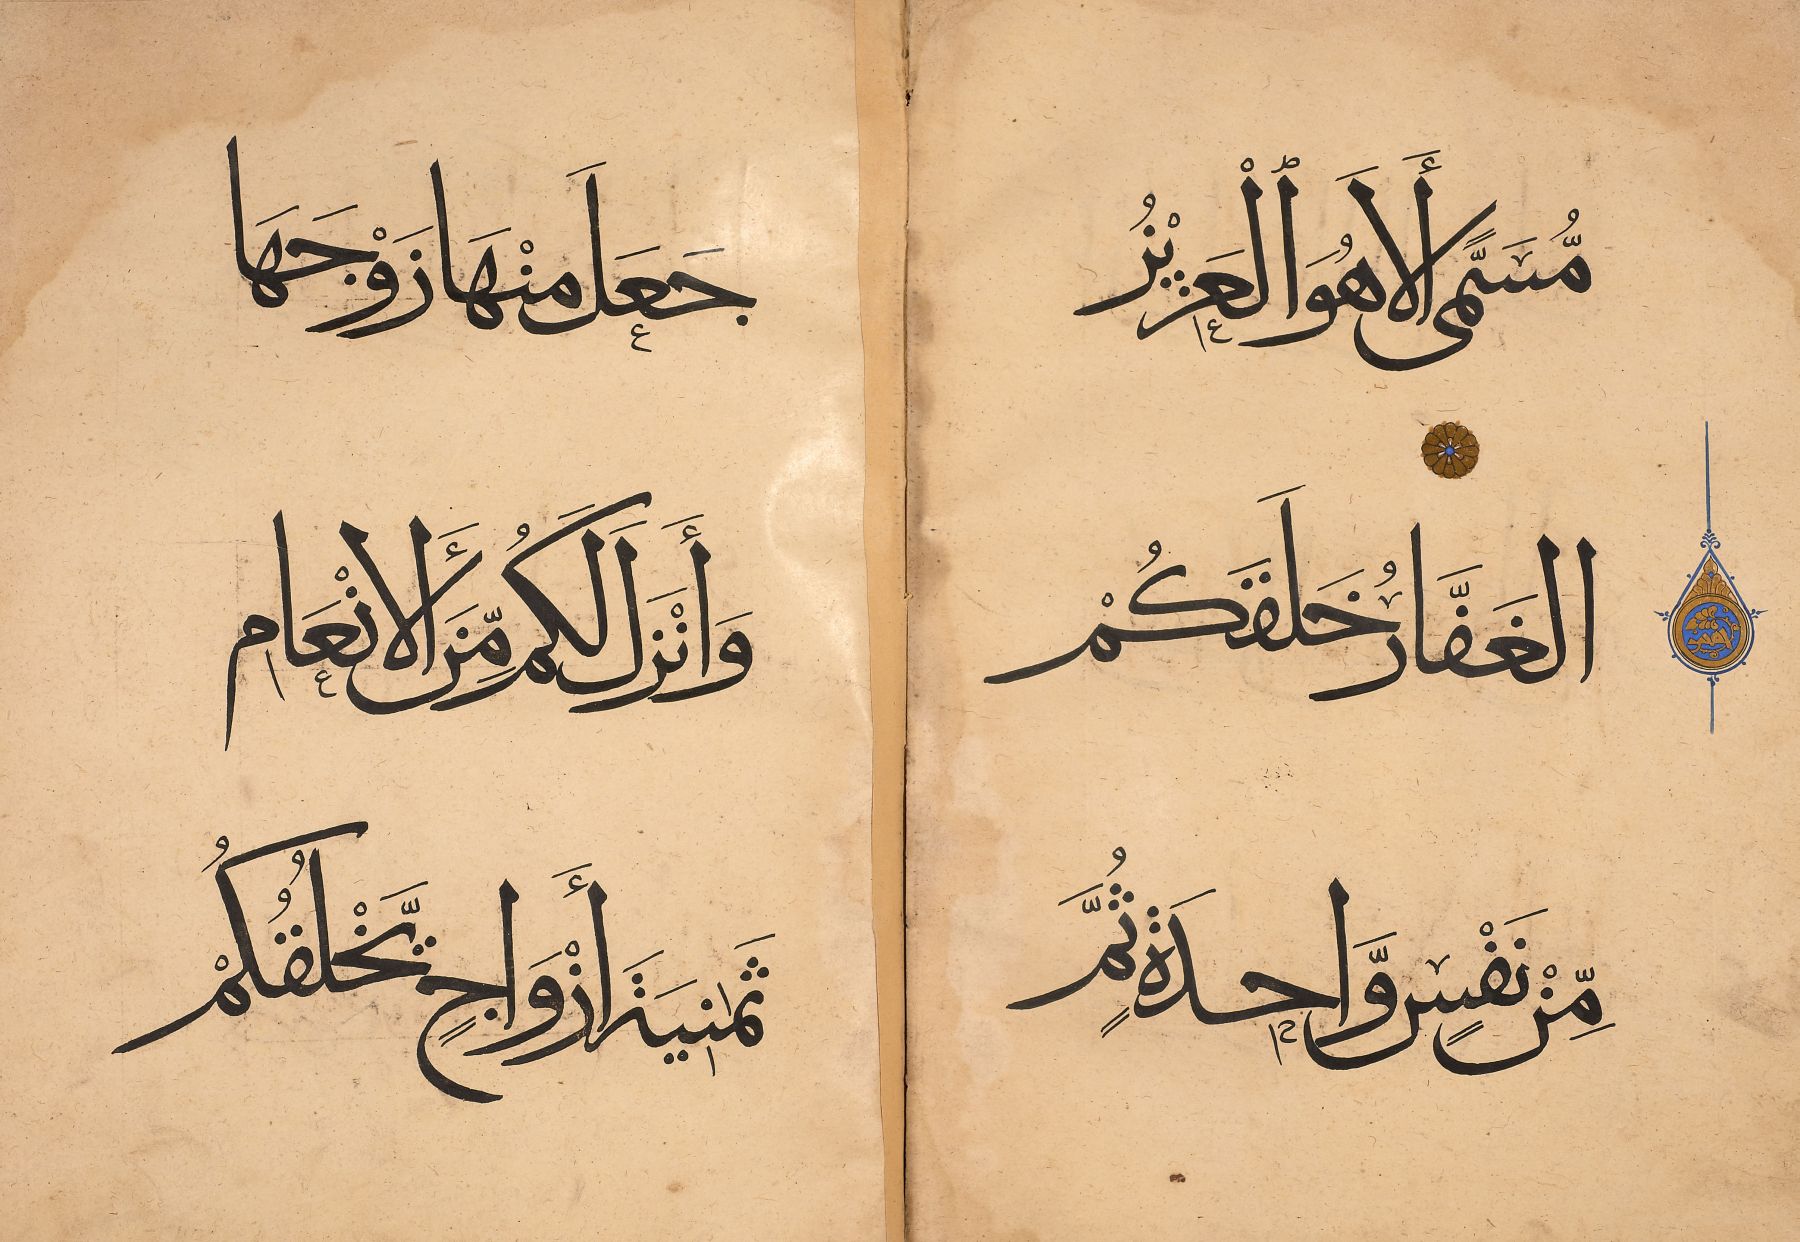 مُّسَمًّى أَلَا هُوَ ٱلْعَزِيزُ
الغَفَّارُ خَلَقَكُمْ
مِّنْ نَفْسٍ وَّاحِدَةٍ ثُمَّ
جَعَلَ مِنْهَا زَوْجَهَا
وَأَنْزَلَ لَكُم مِّنَ الأَنْعَامِ
ثَمٰنِيَةَ أَزْوَاجٍ يَّخْلُقُكُمْ